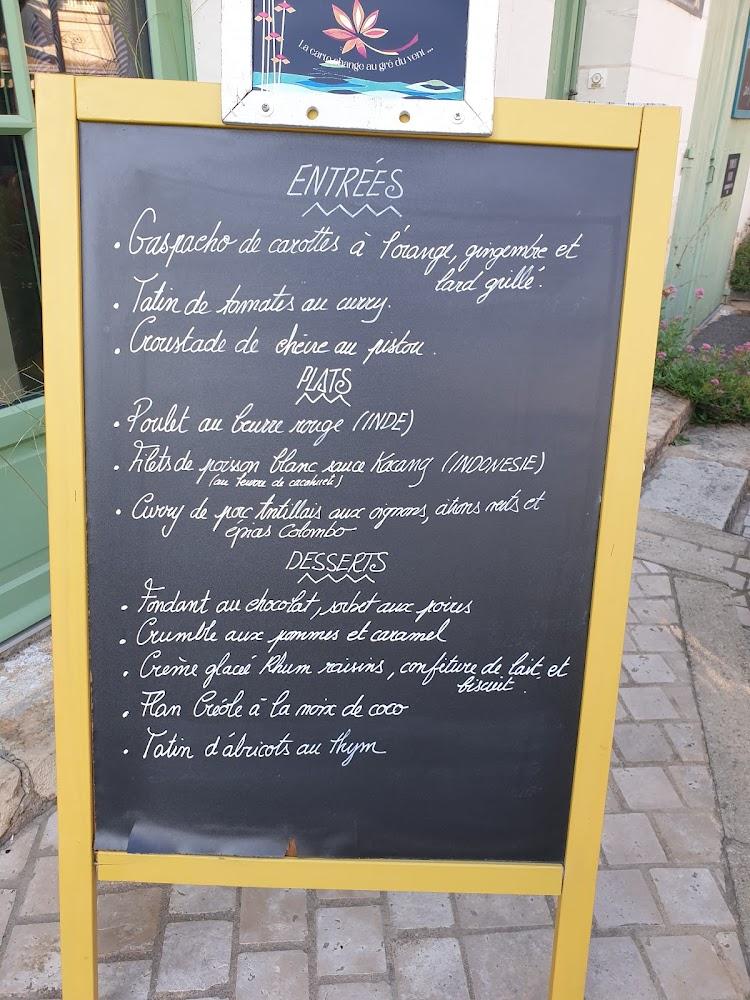 La carte change au gré du vent ...
ENTRÉES
. Gaspacho de carottes à l'orange, gingembre et
lard grillé.
. Tatin de tomates au curry.
. Croustade de chèvre au pistou.
PLATS
. Poulet au beurre rouge (INDE)
. Filets de poisson blanc sauce Kacang (INDONESIE)
(au beurre de cacahuète)
. Curry de porc Antillais aux oignons, citrons verts et
épices Colombo
DESSERTS
. Fondant au chocolat, sorbet aux poires
. Crumble aux pommes et caramel
. Crème glacée Rhum raisins, confiture de lait et
biscuit.
. Flan Créole à la noix de coco
. Tatin d'abricots au thym